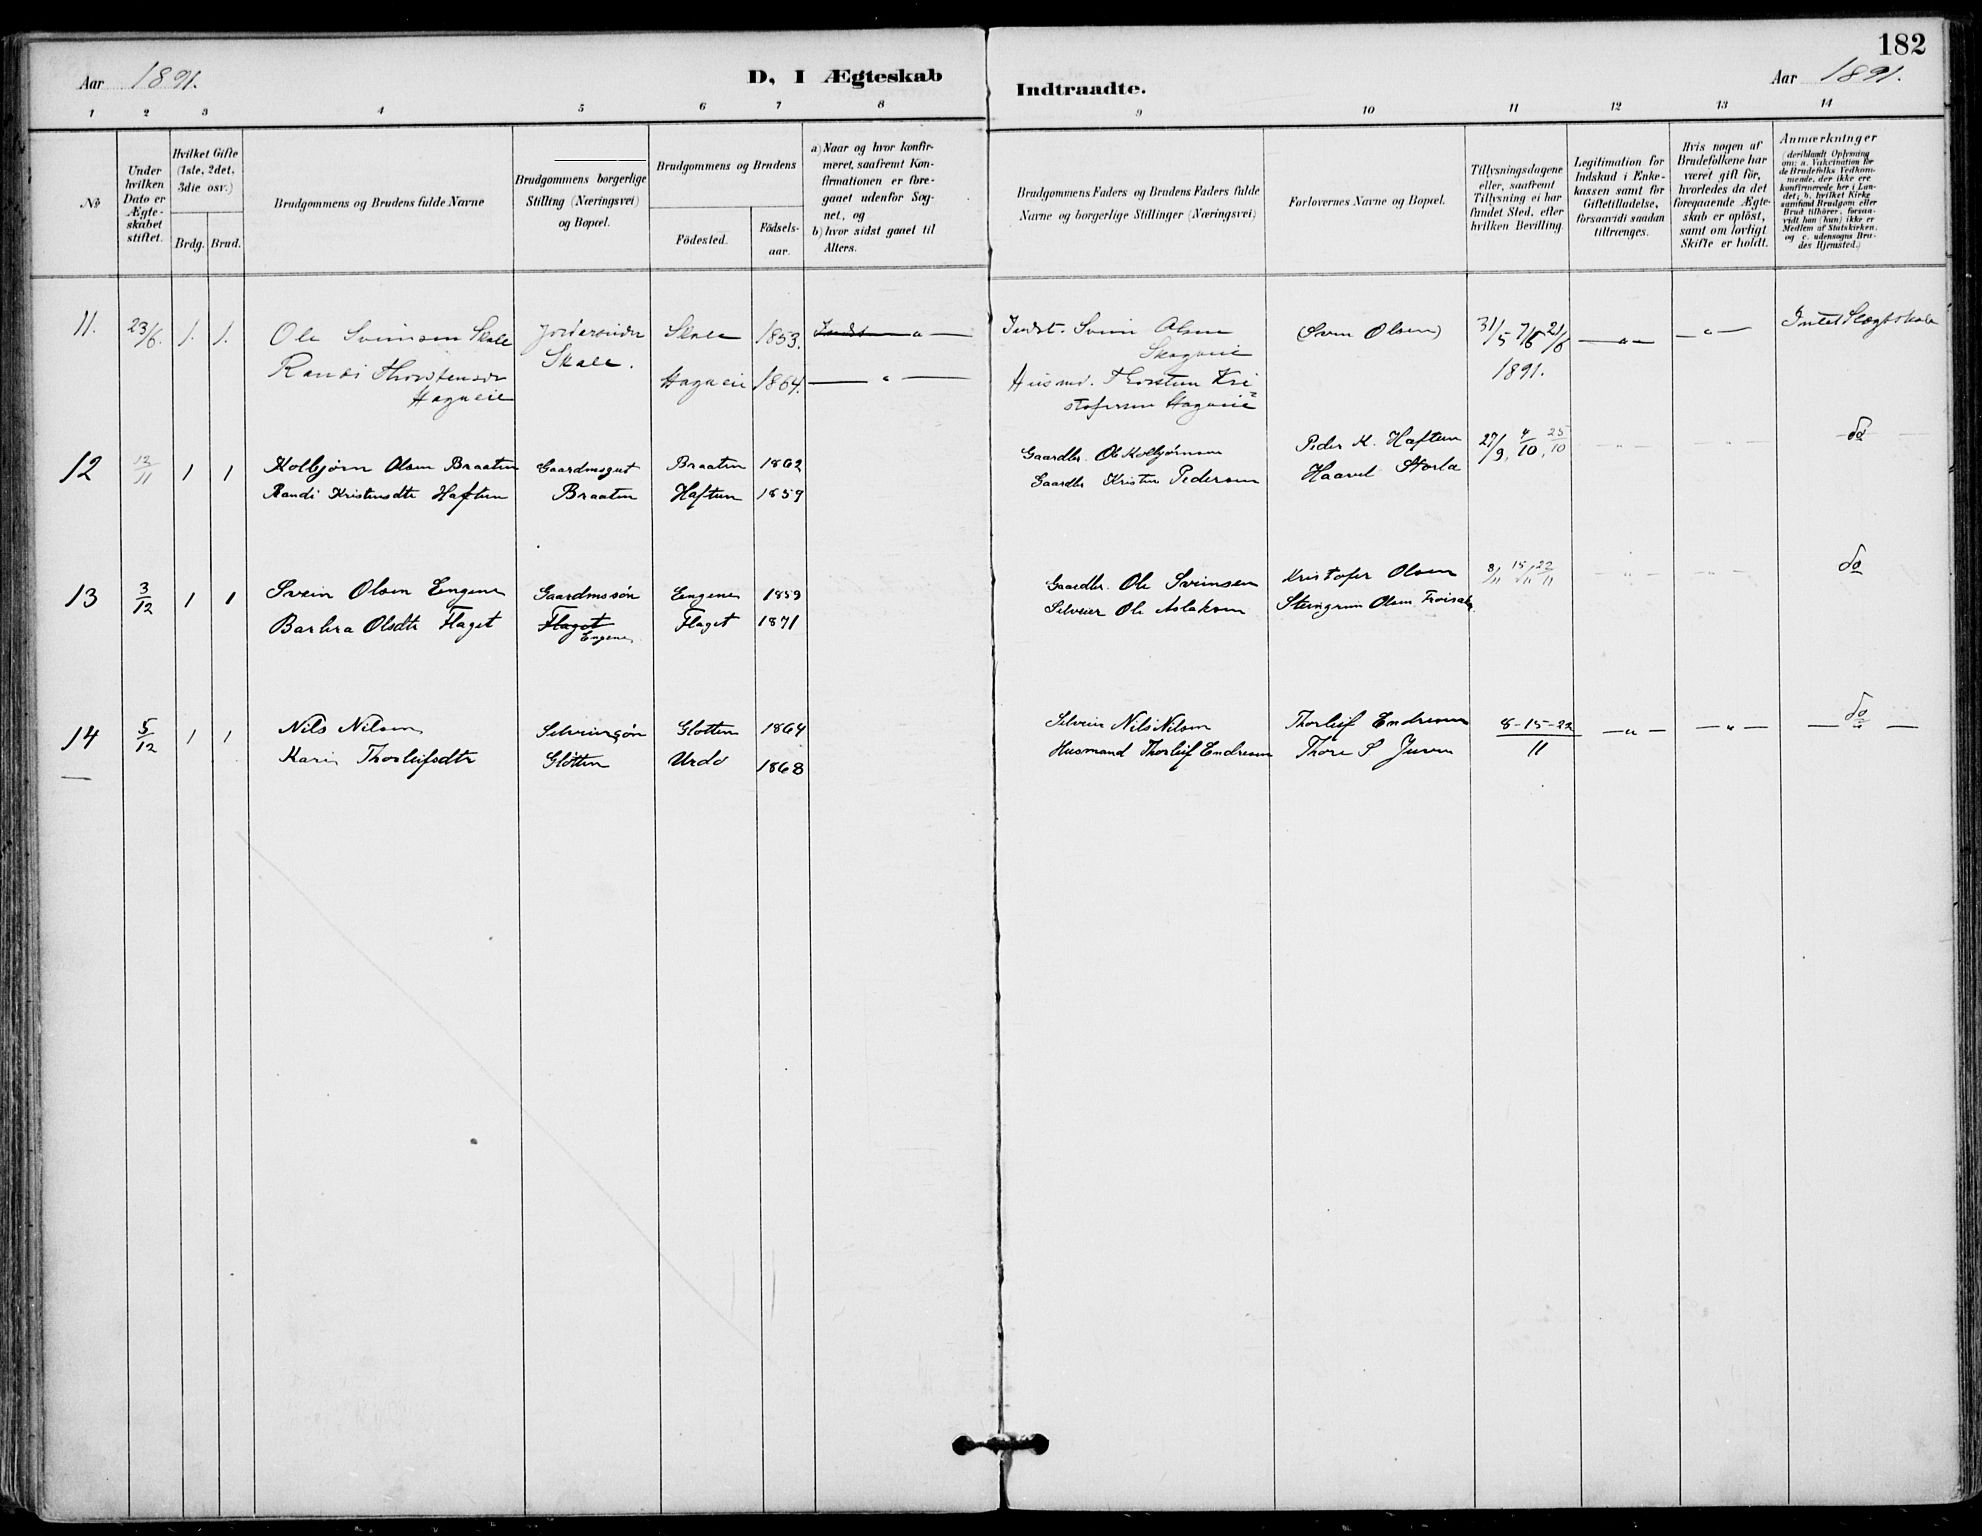 182
Aar 1891.
D, I Ægteskab
Indtraadte.
Aar 1891.
1 2 3 4 5 6 7 8 9 10 11 12 13 14
No
Under hvilken Dato er Ægte-skabet stiftet.
Hvilket Gifte (1ste, 2det, 3die osv.)
Brdg. Brud.
Brudgommens og Brudens fulde Navne
Brudgommens borgerlige Stilling (Næringsvei) og Bopæl.
Brudgommens og Brudens
Födested.
Födsels-aar.
a) Naar og hvor konfir-meret, saafremt Kon-firmationen er fore-gaaet udenfor Sog-net, og
b) hvor sidst gaaet til Alters.
Brudgommens Faders og Brudens Faders fulde Navne og borgerlige Stillinger (Næringsvei)
Forlovernes Navne og Bopæl.
Tillysningsdagene eller, saafremt Tillysning ei har fundet Sted, efter hvilken Bevilling.
Legitimation for Indskud i Enke-kassen samt for Giftetilladelse, forsaavidt saadan tiltrænges.
Hvis nogen af Brudefolkene har været gift för, hvorledes da det foregaaende Ægte-skab er oplöst, samt om lovligt Skifte er holdt.
Anmærkninger
(deriblandt Oplysning om: a. Vakcination for de Brudefolks Vedkom-mende, der ikke ere konfirmerede her i Lan-det; b. hvilket Kirke-samfund Brudgom eller Brud tilhörer, forsaa-vidt han (hun) ikke er Medlem af Statskirken, og c. udensogns Bru-des Hjemsted.)
11. 23/6. 1. 1. Ole Svensen Skale Skale 1853. Indst — " — Indst. Svein Olsen Sven Olsen 31/5 7/6 21/6 — " — — " — Intet Slægtskab
Skale. Skageie
Randi Thorstensdr Hageeie 1864. — " — Husmd. Thorsten Kri= 1891.
Hageeie stofersen Hageeie
12 12/11 1 1 Kolbjørn Olsen Braaten Gaardmsgut Braaten 1862 Gaardbr. Ole Kolbjørnsen Peder K. Haftun 27/9, 4/10, 25/10 — " — — " — do
Randi Kristensdtr Haftun Braaten Haftun 1859 Gaardbr Kristen Pedersen Haavel Storla
13 3/12 1 1 Svein Olsen Engene Gaardmssön Engene 1859 Gaardbr. Ole Sveinsen Kristofer Olsen 8/11 15/11 22/11 — " — — " — do
Barbra Olsdtr Flaget Flaget Flaget 1871 Selveier Ole Aslaksen Steingrim Olsen
Engene
14 5/12 1 1 Nils Nilsen Selveiersøn Glotten 1864 Selveier Nils Nilsen Thorleif Endresen 8-15-22 — " — — " — do
Kari Thorleifsdtr Glotten Urdo 1868 Husmand Thorleif Endresen Thore S Juven 11